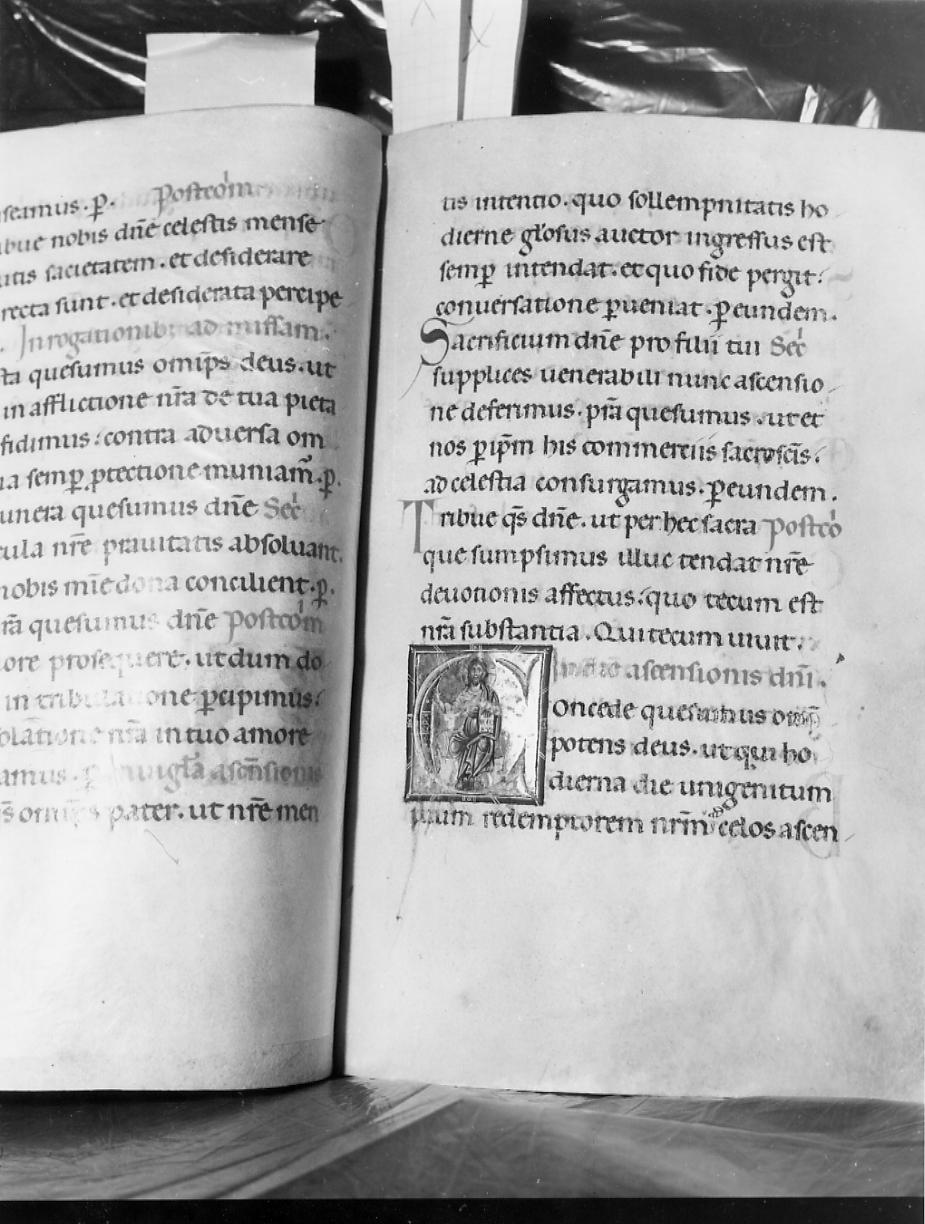 seamus. p. Postcōm
buε nobis dn̄e celestis mense
utis sacietatem. et desiderare
recta sunt. et desiderata percipe
In rogationib; ad missam.
sta quesumus omīps deus. ut
in afflictione nr̄a de tua pieta
fidimus: contra aduersa om
ia semp ptectione muniam̄. p.
unera quesumus dn̄e Sec̄
cula nr̄e prauitatis absoluant.
nobis mīe dona concilient. p.
rā quesumus dn̄e Postcōm
ore prosequere. ut dum do
in tribulatione pcipimus:
olatione nr̄a in tuo amore
amus. p In uigl̄a ascēnsionis
s̄ om̄ps pater. ut nr̄e men
tis intentio. quo sollempnitatis ho
dierne gl̄osus auctor ingressus est
semp intendat. et quo fide pergit:
conuersatione pueniat. p eundem.
Sacrificium dn̄e pro filii tui Sec̄
supplices uenerabili nunc ascensio
ne deferimus. pr̄a quesumus. ut et
nos p ip̄m his commerciis sacrosc̄is.
ad celestia consurgamus. p eundem.
Tribue q̄s dn̄e. ut per hec sacra Postcō
que sumpsimus illuc tendat nr̄e
deuotionis affectus: quo tecum est
nr̄a substantia. Qui tecum uiuit.
In die ascensionis dn̄i.
Concede quesumus om̄
potens deus. ut qui ho
dierna die unigenitum
tuum redemptorem nr̄m ad celos ascen